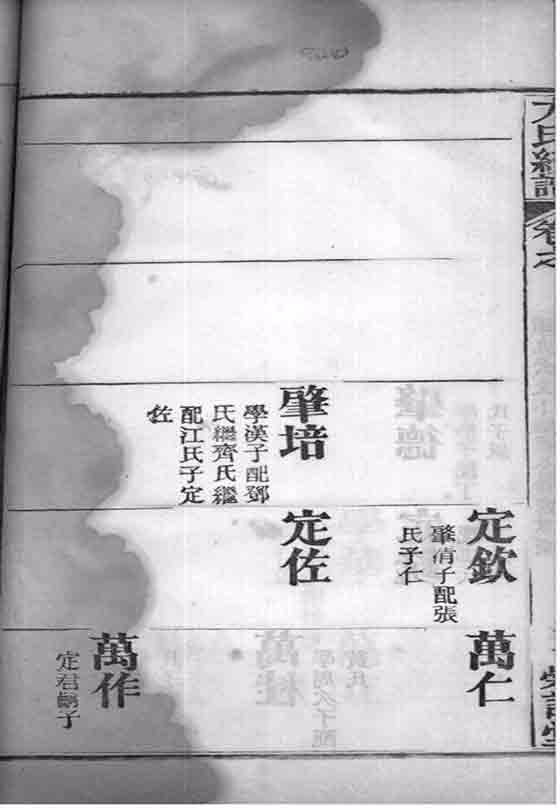 卷之
肇培
學漢子配鄧
氏繼齊氏繼
配江氏子定
佐
定欽
肇清子配張
氏子仁
定佐
萬仁
萬作
定君嗣子